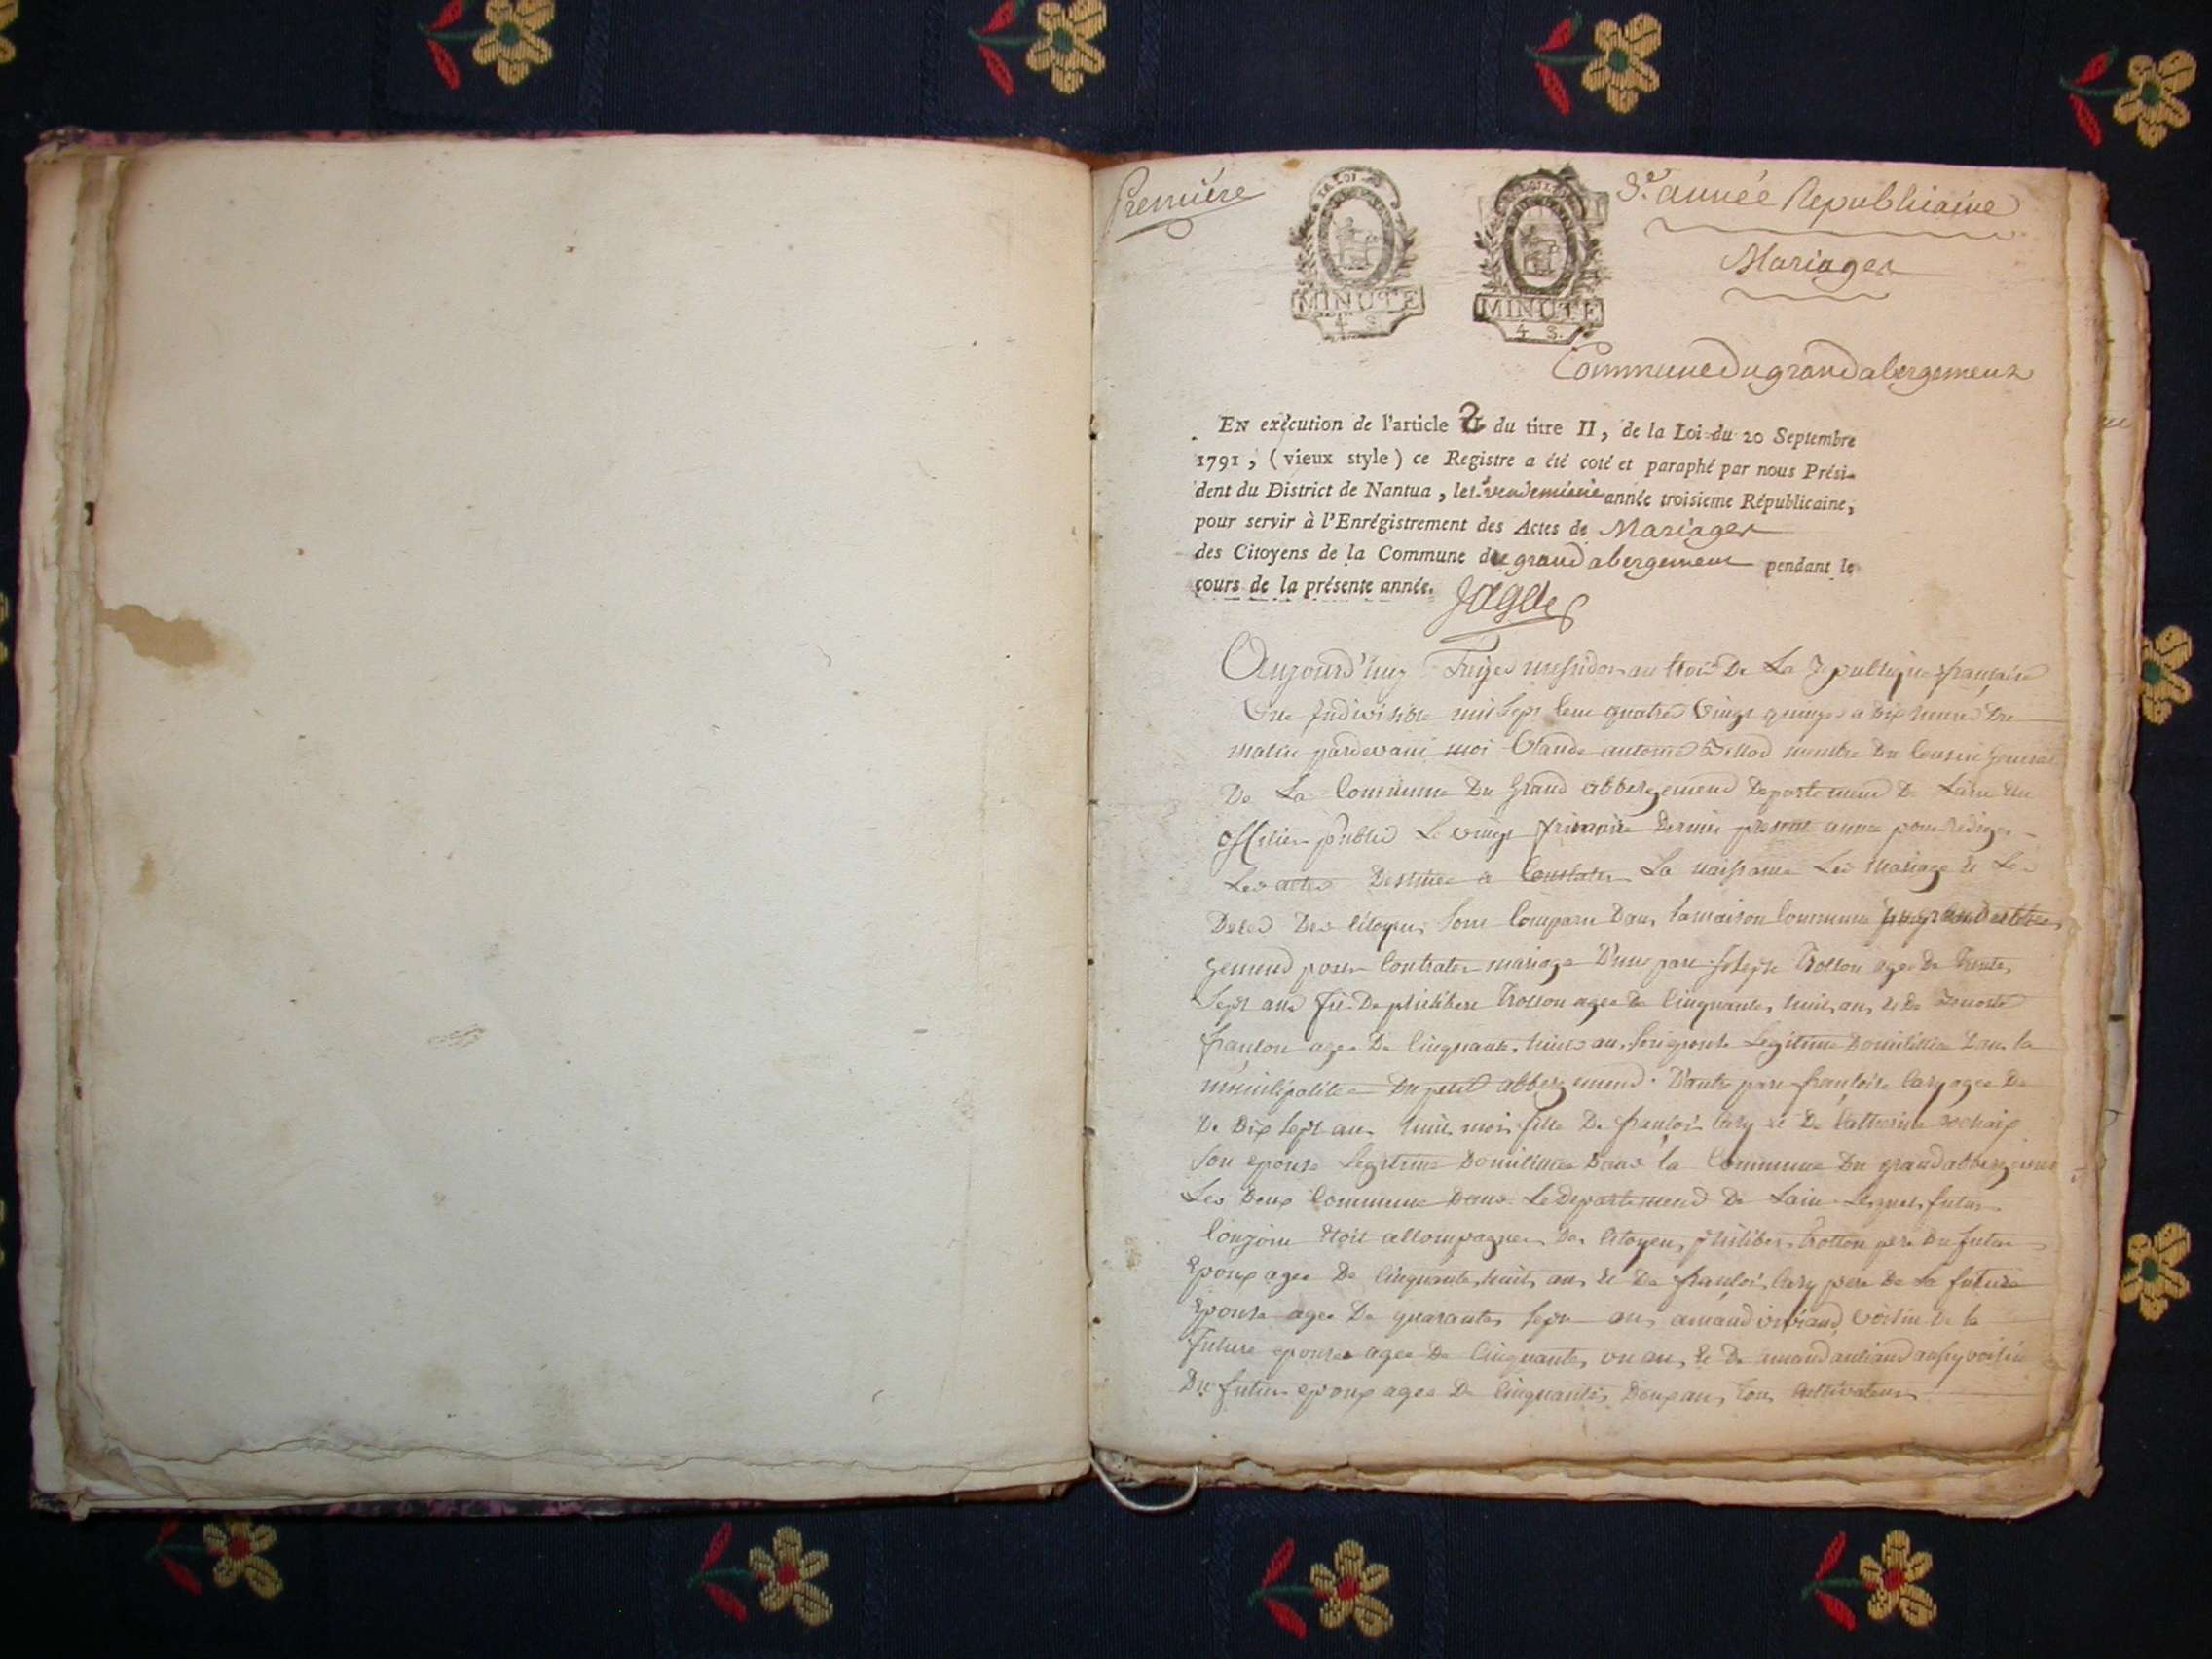 Premiére
LA LOI
MINUTE
4 S.
MINUTE
4 S.
3.e année Republicaine
Mariages
Commune du grand abergement
EN exécution de l'article 2 du titre II, de la Loi du 20 Septembre
1791, (vieux style) ce Registre a été coté et paraphé par nous Prési-
dent du District de Nantua, le 1.er vendemiaire année troisieme Républicaine,
pour servir à l'Enrégistrement des Actes de Mariages
des Citoyens de la Commune du grand abergement pendant le
cours de la présente année.
Aujourd'huy Treize messidor an trois De La Republique française
Une Indivisible mil sept Cent quatre Vingt quinze a Dix heures Du
matin pardevant moi Claude antoine membre Du Conseil General
De La Commune Du Grand abbergement Departement De Lain Elu
officier public Le vingt frimaire Dernier presente annee pour rediger
Les actes Destinee a Constater La naissance Les Mariage et Les
Deces Des Citoyens Sont Comparu Dans la maison Commune
gement pour Contracter mariage D'une part Joseph Trotton agee De trente
Sept ans fis De philibert Trotton agee de Cinquante huit ans et de
françon agee De Cinquante huit ans Son epouse Legitime Domiciliee Dans la
municipalitee Du petit abbergement. D'autre part françoise Cary agee De
De Dix Sept ans huit mois fille De françois Cary et De Catherine
Son epouse Legitime Domiciliee Dans la Commune Du grand abbergement
Les Deux Commune Dans Le Departement De Lain Lesquel futur
Conjoin etoit accompagner Des Citoyens philibert Trotton pere Du futur
Epoux agee De Cinquante huit ans et De françois Cary pere De La future
Epouse agee De quarante Sept ans amand viviand voisin De la
future epouse agee De Cinquante un ans et De amand aussy voisin
Du futur epoux agee De Cinquante Deux ans tous Cultivateurs